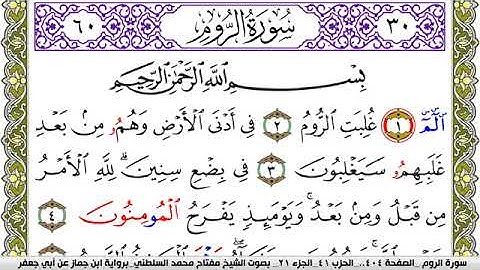 ٣٠ سُورَةُ الرُّومِ ٦٠
بِسْمِ اللَّهِ الرَّحْمَٰنِ الرَّحِيمِ
الٓمٓ ١ غُلِبَتِ ٱلرُّومُ ٢ فِىٓ أَدْنَى ٱلْأَرْضِ وَهُمُۥ مِنۢ بَعْدِ
غَلَبِهِمُۥ سَيَغْلِبُونَ ٣ فِى بِضْعِ سِنِينَۗ لِلَّهِ ٱلْأَمْرُ
مِن قَبْلُ وَمِنۢ بَعْدُۚ وَيَوْمَئِذٍ يَفْرَحُ ٱلْمُومِنُونَ ٤
سورة الروم_ الصفحة ٤٠٤_ الحزب ٤١_الجزء ٢١_ بصوت الشيخ مفتاح محمد السلطني_برواية ابن جماز عن أبي جعفر